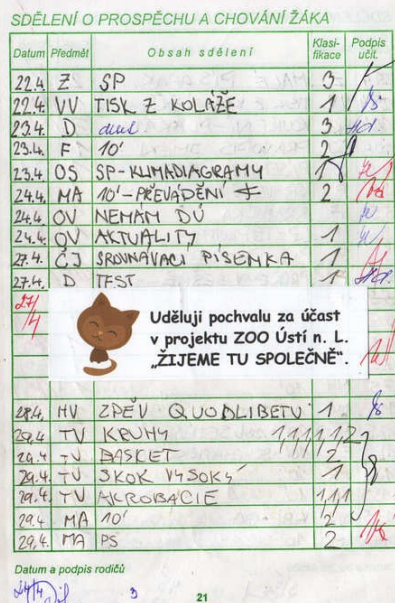 SDĚLENÍ O PROSPĚCHU A CHOVÁNÍ ŽÁKA
Datum Předmět Obsah sdělení Klasi-fikace Podpis učit.
22.4. Z SP 3
22.4. VV TISK Z KOLÁŽE 1
23.4. D 3
23.4. F 10' 2
23.4. OS SP-KLIMADIAGRAMY 1
24.4. MA 10'-PŘEVÁDĚNÍ 2
24.4. OV NEMÁM DÚ
24.4. OV AKTUALITY 1
27.4. ČJ SROVNÁVACÍ PÍSEMKA 1
27.4. D TEST 1
27/4
Uděluji pochvalu za účast
v projektu ZOO Ústí n. L.
„ŽIJEME TU SPOLEČNĚ".
28.4. HV ZPĚV QUODLIBETU 1
29.4. TV KRUHY 1,1,1,1,2
29.4. TV BASKET 2
29.4. TV SKOK VYSOKÝ 1
29.4. TV AKROBACIE 1,1,1
29.4. MA 10' 2
29.4. MA PS 2
Datum a podpis rodičů
21